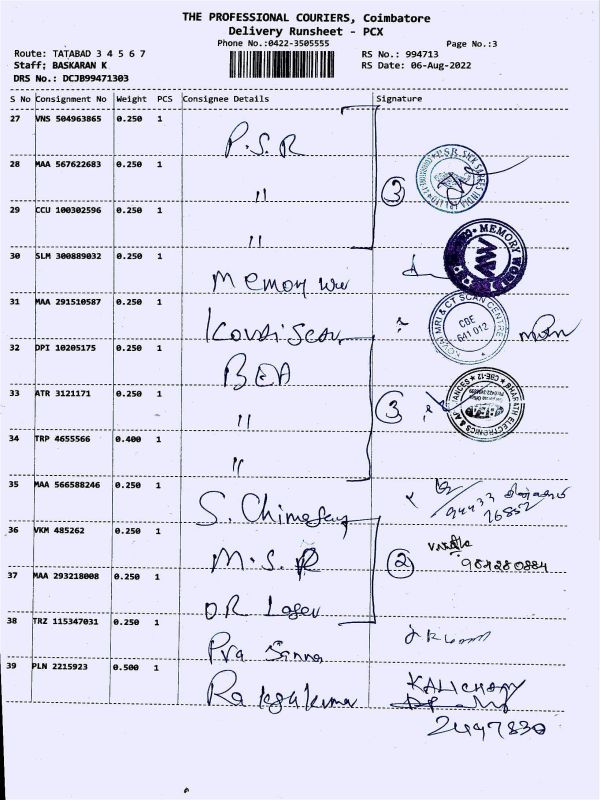 THE PROFESSIONAL COURIERS, Coimbatore
Delivery Runsheet - PCX
Phone No.:0422-3505555
Page No.:3
Route: TATABAD 3 4 5 6 7
RS No.: 994713
Staff: BASKARAN K
RS Date: 06-Aug-2022
DRS No.: DCJB99471303
S No Consignment No Weight PCS Consignee Details Signature
27 VNS 504963865 0.250 1 P.S.R
28 MAA 567622683 0.250 1 "
3
29 CCU 100302596 0.250 1 "
30 SLM 300889032 0.250 1 Memory
MEMORY
31 MAA 291510587 0.250 1 Kovai Scan
KOVAI MRI & CT SCAN CENTRE
CBE
641 012
32 DPI 10205175 0.250 1 BEA
33 ATR 3121171 0.250 1 "
3
BHARATH ELECTRONICS & APPLIANCES
CBE-12
BEA
34 TRP 4655566 0.400 1 "
35 MAA 566588246 0.250 1 S.
94433
76852
36 VKM 485262 0.250 1 M.S.R
2
37 MAA 293218008 0.250 1 DR Laser
38 TRZ 115347031 0.250 1 Prasanna
39 PLN 2215923 0.500 1
2497830